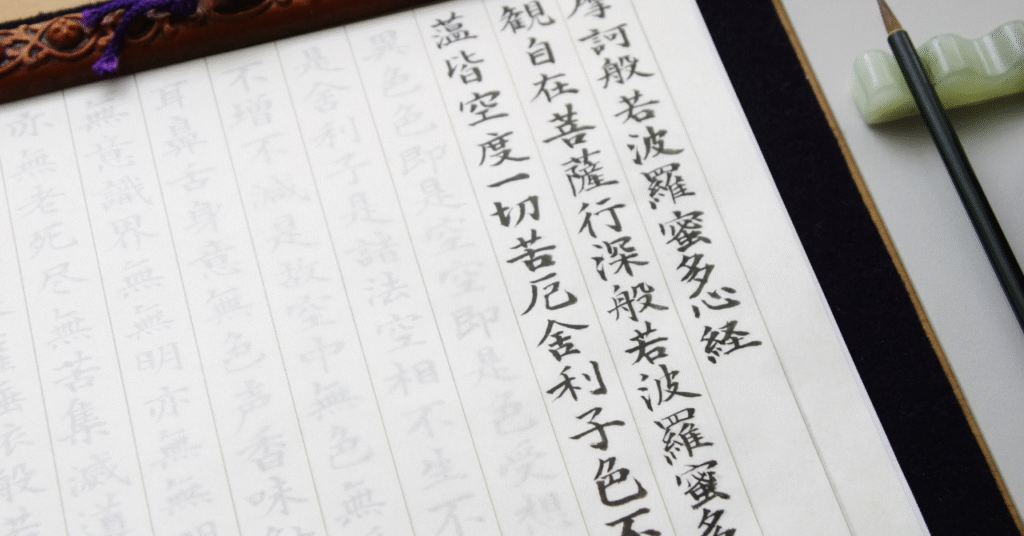 摩訶般若波羅蜜多心経
観自在菩薩行深般若波羅蜜多
薀皆空度一切苦厄舎利子色不
異色即是空空即是色受想
是舎利子是諸法空相不生不
不増不減是故空中無色無
耳鼻舌身意無色声香味
無意識界無無明亦無無明
亦無老死尽無苦集滅道
依般若